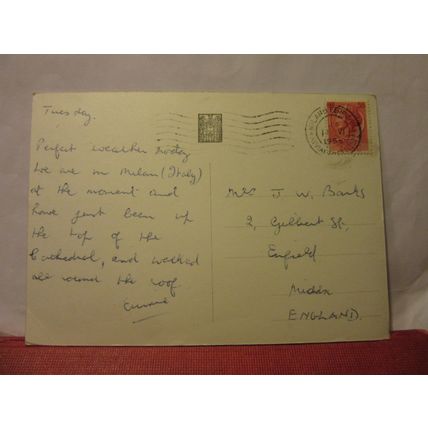 Tuesday.
Perfect weather today
We are in Milan (Italy)
at the moment and
have just been up
the top of the
Cathedral, and walked
all round the roof.
MILANO
Mrs J. W. Banks
2, Gilbert St,
Enfield
Middx
ENGLAND.